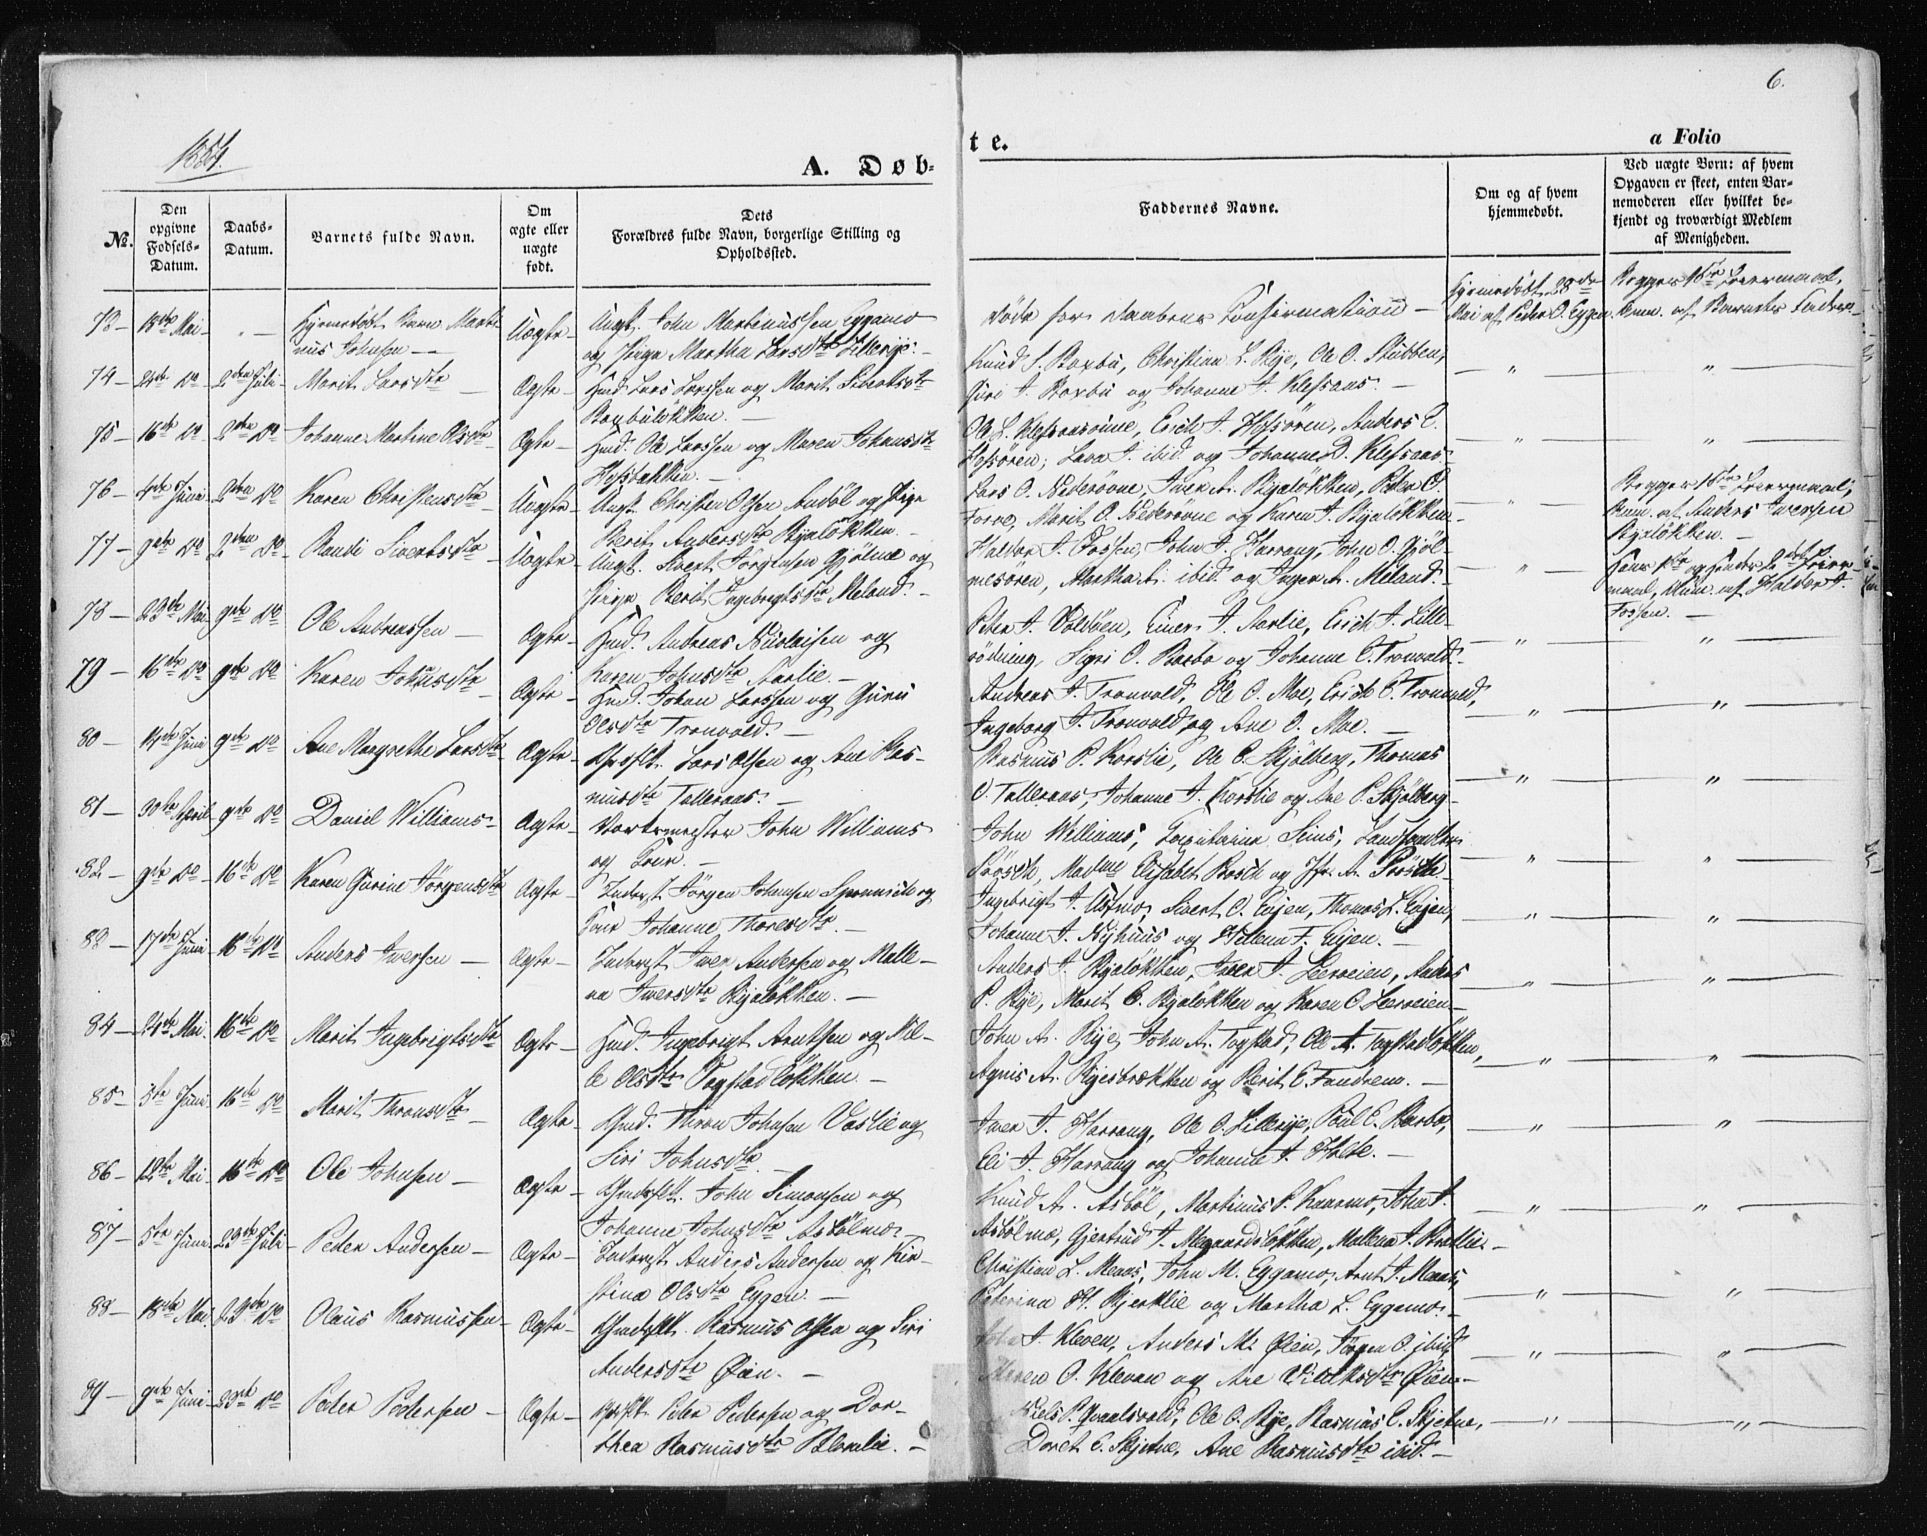 6.
1854.
A. Døb-
te.
a Folio
No.
Den opgivne Fødsels-Datum.
Daabs-Datum.
Barnets fulde Navn.
Om ægte eller uægte født.
Dets Forældres fulde Navn, borgerlige Stilling og Opholdssted.
Faddernes Navne.
Om og af hvem hjemmedøbt.
Ved uægte Børn: af hvem Opgaven er skeet, enten Barnemoderen eller hvilket bekjendt og troværdigt Medlem af Menigheden.
73 - 18de Mai - " - Hjemmedøbt Barn Marti-
nus Johnsen - Uægte - Ungk. John Martinussen Eggamo
og Pige Martha Larsdtr Lillerye. -
døde før Daabens Confirmation -
Hjemmedøbt 28de
Mai af Peder O. Eggen.
Begges 1ste Leiermaal,
Anm. af Barnets Fader
74 - 24de Do - 2den Juli - Marit Larsdtr - Ægte - Gmd. Lars Larssen og Marit Sivertsdtr
Boxbuløkken. -
Knud S. Boxbu, Christian L. Rye, Ole O. Stubben,
Guri J. Boxbu og Johanne J. Klefsaas. -
75 - 16de Do - 2den Do - Johanne Martine Olsdtr - Ægte - Gmd. Ole Larssen og Maren Johansdtr
Hofsbakken. -
Erich J. Hofsøren, Anders E.
Hofsøren; J. ibid. og Johanne D. Klefsaas
76 - 4de Juni - 2den Do - Karen Christensdtr - Uægte - Ungk. Christen Olsen Asbøl og Pige
Berit Andersdtr Ryaløkken. -
Lars O. Nederøvne, Iver A. Ryaløkken, Peter O.
Forve, Marit O. Nederøvne og Karen J. Ryaløkken -
Begges 1ste Leiermaal,
Anm. af Anders Iversen
Ryaløkken. -
77 - 9de Do - 2den Do - Randi Sivertsdtr - Uægte - Ungk. Sivert Jørgensen Gjølme og
Pige Berit Ingebrigtsdtr Meland. -
Haldor J. Fossen, John J. Harrang, John O. Gjøl-
mesøren, Martha A. ibid. og Inger A. Meland. -
Hans 1ste og hendes 2det Leier-
maal, Anm. af Haldor J.
Fossen. -
78 - 23de Mai - 9de Do - Ole Andreassen - Ægte - Gmd. Andreas Nicolaisen og
Karen Johnsdtr Aarlie. -
Peter J. Voldøen, Einer J. Aarlie, Erich J. Lille-
rødning, Sigri O. Barbo og Johanne E. Tronvold. -
79 - 16de Do - 9de Do - Karen Johnsdtr - Ægte - Gmd. Johan Larssen og Guru
Olsdtr Tronvold. -
Andreas J. Tronvold, Ole O. Moe, Erich E. Tronvold,
Ingeborg J. Tronvold og Ane O. Moe. -
80 - 14de Juni - 9de Do - Ane Margrethe Larsdtr - Ægte - Lars Olsen og Ane Ras-
musdtr Talleraas. -
Rasmus P. Korslie, Ole E. Skjølberg, Thomas
O. Talleraas, Johanne J. Korslie og Ane P. Skjølberg -
81 - 30te April - 9de Do - Daniel Williams - Ægte - Værkmester John Williams
og Frue. -
John Williams, Seius, Landhandler
Rösch, Madme Elisabet Rösch og Jfr. A. Rösch
82 - 9de Do - 16de Do - Karen Gurine Jørgensdtr - Ægte - Inderst Jørgen Johansen og
Johanne Thoresdtr. -
Ingebrigt J. Ustmo, Sivert O. Evjen, Thomas L. Evjen,
Johanne J. Nyhuus og Hellena T. Evjen. -
83 - 17de Juni - 16de Do - Anders Iversen - Ægte - Inderst Iver Andersen og Malle-
na Iversdtr Ryaløkken. -
Anders J. Ryaløkken, Iver J. Leerveien, Anders
P. Rye, Marit C. Ryaløkken og Karen O. Leerveien -
84 - 24de Mai - 16de Do - Marit Ingebrigtsdtr - Ægte - Gmd. Ingebrigt Arntsen og Nil-
le Olsdtr Togstadløkken. -
John A. Rye, John A. Togstad, Ole A. Togstadløkken,
Agnis A. Ryesbrækken og Berit E. Fandrem. -
85 - 5te Juni - 16de Do - Marit Thronsdtr - Ægte - Gmd. Thron Johnsen Vaslie og
Siri Johnsdtr -
Iver J. Harrang, Ole O. Lillerye, Poul E. Barbo,
Eli J. Harrang og Johanna J. Holte. -
86 - 12te Mai - 16de Do - Ole Johnsen - Ægte - John Simonsen og
Johanne Johnsdtr Asbølmo -
Knud A. Asbøl, Martinus P. Kaarmo, John J.
Asbølmo, Gjertrud J. Megaardsløkken, Mallena J. Bratlie -
87 - 5te Juni - 23de Juli - Peder Andersen - Ægte - Inderst Anders Andersen og Kir-
stina Olsdtr Eggen. -
Christian L. Meaas, John M. Eggamo, Arnt J. Meaas,
Peterina H. Bjerklie og Martha L. Eggamo -
88 - 18de Mai - 23de Do - Olaus Rasmussen - Ægte - Rasmus Olsen og Siri
Andersdtr Øien. -
John J. Kleven, Anders M. Øien, Jørgen O. ibid
Maren O. Kleven og Ane Øien. -
89 - 9de Juni - 23de Do - Peder Pedersen - Ægte - Peder Pedersen og Dor-
thea Rasmusdtr -
Niels P. Qvaalsvold, Ole O. Rye, Rasmus E. Skjetne,
Doret E. Skjetne, Ane Rasmusdtr ibid. -